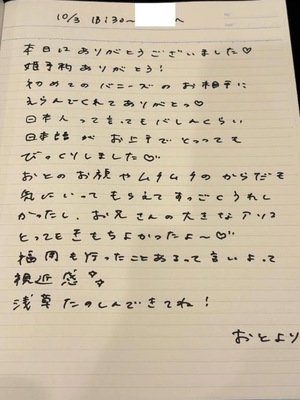 10/3 18:30〜 〜
本日はありがとうございました♡
姫予約ありがとう!
初めてのバニーズのお相手に
えらんでくれてありがとっ♡
日本人って言ってもバレんくらい
日本語がお上手でとっても
びっくりしました♡
おとのお顔やムチムチのからだも
気にいってもらえてすっごくうれし
かったし、お兄さんの大きなアソコ
とってもきもちよかったよ〜♡
福岡も行ったことあるって言いよって
親近感
浅草たのしんできてね!
おとより